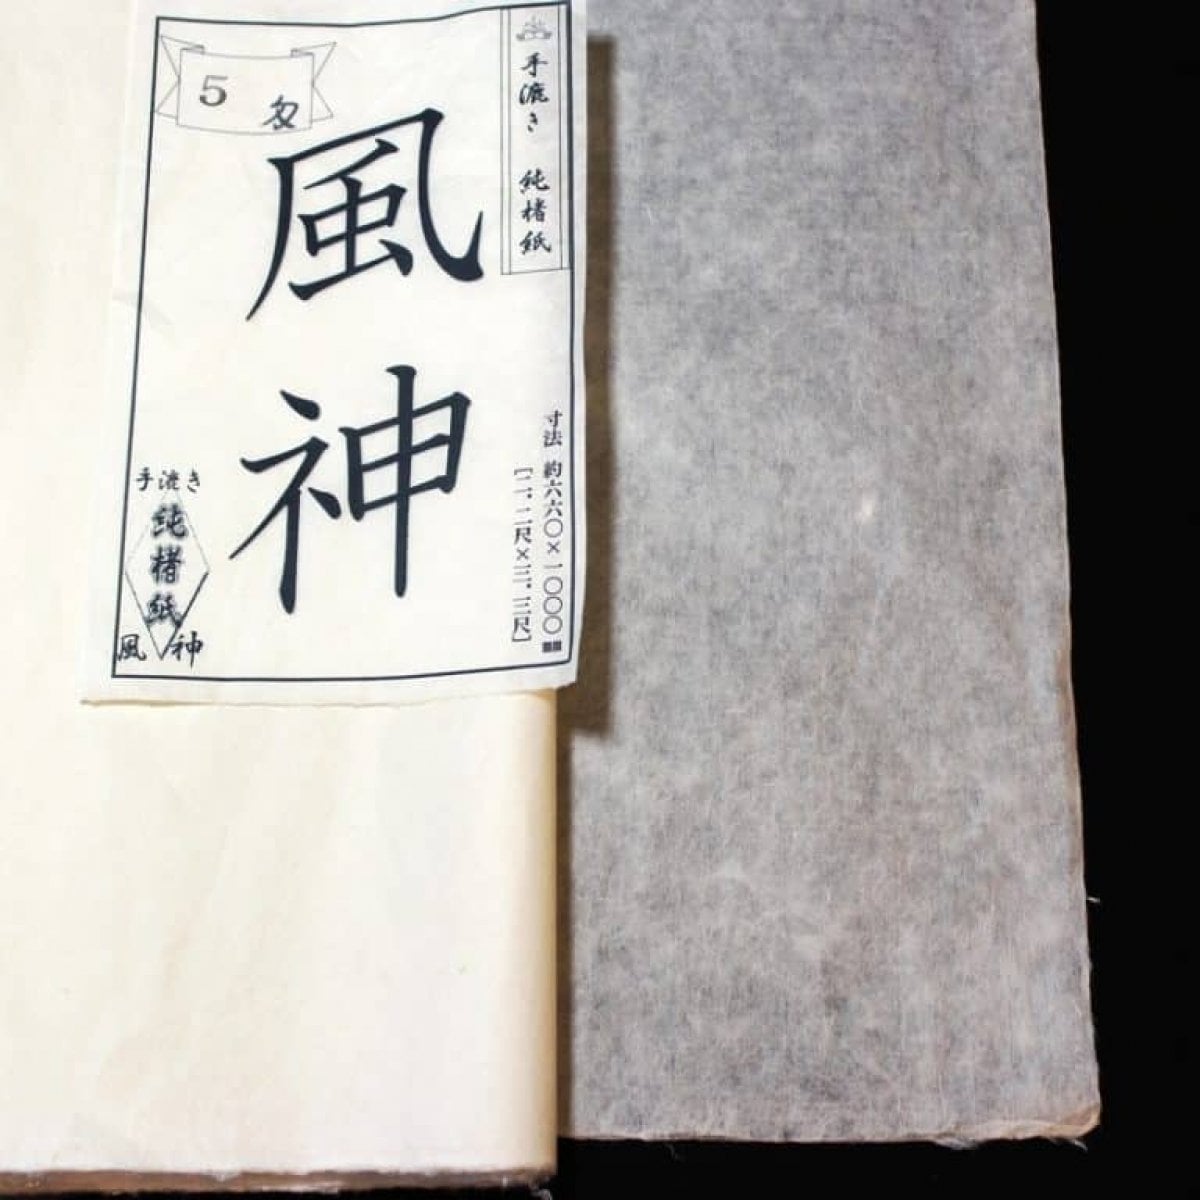 手漉き 純楮紙
5 匁
風神
寸法 約六六〇×一〇〇〇㎜
[二.二尺×三.三尺]
手漉き
純楮紙
風神